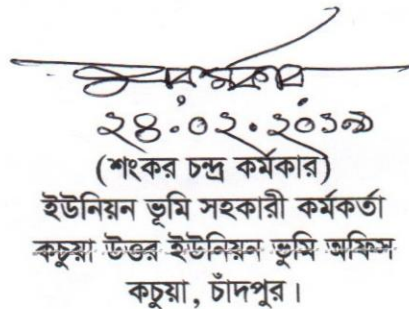 ২৪.০২.২০১৯
(শংকর চন্দ্র কর্মকার)
ইউনিয়ন ভূমি সহকারী কর্মকর্তা
কচুয়া উত্তর ইউনিয়ন ভূমি অফিস
কচুয়া, চাঁদপুর।